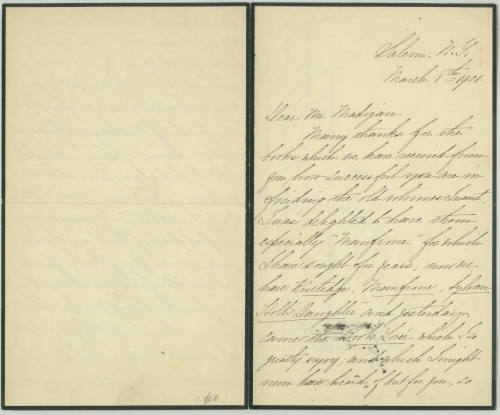 Salem. N.Y.
March 8th 1901
Dear Mr. Madigan
Many thanks for the
books which we have received from
you, how successful you are in
finding the old volumes I want.
I was delighted to have them
especially "Monfrone" for which
I have sought for years; now we
have Rutledge, Monfrone, Sylvan
Holt's Daughter and yesterday
came the Book Lover which I so
greatly enjoy, and which I might
never have heard of but for you, so